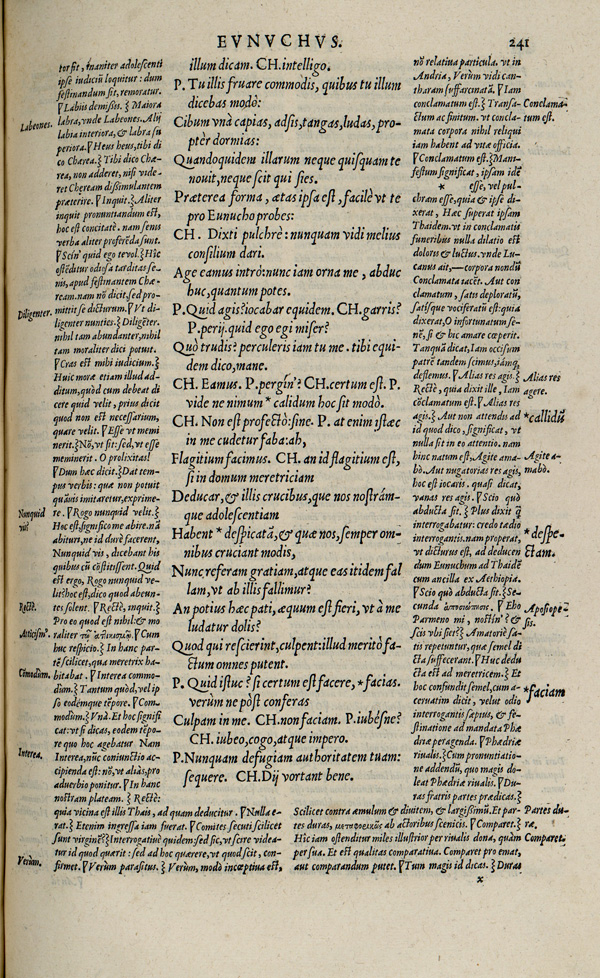 EVNVCHVS.
241
torſit, inaniter adoleſcenti
ipſe iudiciũ loquitur: dum
feſtinandum ſit, remoratur.
Labiis demiſſis. Maiora
labra, vnde Labeones. Alij
labia interiora, & labra ſu
periora. Heus heus, tibi di
co Chærea. Tibi dico Chæ-
rea, non adderet, niſi vide-
ret Chæream diſſimulantem
præterire. Inquit. Aliter
inquit pronuntiandum eſt,
hoc eſt concitatè. nam ſenis
verba aliter proferẽda ſunt.
Scin' quid ego te vol. Hîc
oſtẽditur odioſa tarditas ſe-
nis, apud feſtinantem Chæ-
ream. nam nõ dicit, ſed pro-
mittit ſe dicturum. Vt di-
ligenter nunties. Diligẽter.
nihil tam abundanter, nihil
tam moraliter dici potuit.
Cras eſt mihi iudicium.
Huic moræ etiam illud ad-
ditum, quòd cum debeat di
cere quid velit, prius dicit
quod non eſt neceſſarium,
quare velit. Eſſe vt memi
nerit. Nõ, vt ſit: ſed, vt eſſe
meminerit. O prolixitas!
Dum hæc dicit. Dat tem-
pus verbis: quæ non potuit
quãuis imitaretur, exprime-
re. Rogo nunquid velit.
Hoc eſt, ſignifico me abire. nã
abituri, ne id durè facerent,
Nunquid vis, dicebant his
quibus cũ cõſtitiſſent. Quid
eſt ergo, Rogo nunquid ve-
lit? hoc eſt, dico quod abeun-
tes ſolent. Rectè, inquit.
Pro eo quod eſt nihil: & mo
raliter τῷ ἀττικισμῷ. Cum
huc reſpicio. In hanc par-
tẽ ſcilicet, qua meretrix ha-
bitabat. Interea commo-
dùm. Tantum quòd, vel ip
ſo eodémque tẽpore. Com-
modum. Vnà. Et hoc ſignifi
cat: vt ſi dicas, eodem tẽpo-
re quo hoc agebatur Nam
Interea, nũc coniunctio ac-
cipienda eſt: nõ, vt aliàs, pro
aduerbio ponitur. In hanc
noſtram plateam. Rectè:
quia vicina eſt illis Thais, ad quam deducitur. Nulla e-
rat. Etenim ingreſſa iam fuerat. Comites ſecuti ſcilicet
ſunt virginẽ? Interrogatiuè quidem: ſed ſic, vt ſcire videa-
tur id quod quærit: ſed ad hoc quærere, vt quod ſcit, con-
firmet. Verùm paraſitus. Verùm, modò inceptiua eſt,
Labeones.
Diligenter.
Nunquid
vis?
Rectè.
Atticiſm'.
Cõmodùm.
Interea.
Verùm.
illum dicam. CH. intelligo.
P. Tu illis fruare commodis, quibus tu illum
dicebas modò:
Cibum vnà capias, adſis, tangas, ludas, pro-
ptèr dormias:
Quandoquidem illarum neque quiſquam te
nouit, neque ſcit qui ſies.
Præterea forma, ætas ipſa eſt, facilè vt te
pro Eunucho probes:
CH. Dixti pulchrè: nunquam vidi melius
conſilium dari.
Age eamus intrò: nunc iam orna me, abduc
huc, quantum potes.
P. Quid agis? iocabar equidem. CH. garris?
P. perij. quid ego egi miſer?
Quò trudis? perculeris iam tu me. tibi equi-
dem dico, mane.
CH. Eamus. P. pergin'? CH. certum eſt. P.
vide ne nimum * calidum hoc ſit modò.
CH. Non eſt profectò: ſine. P. at enim iſtæc
in me cudetur faba: ah,
Flagitium facimus. CH. an id flagitium eſt,
ſi in domum meretriciam
Deducar, & illis crucibus, quæ nos noſtrám-
que adoleſcentiam
Habent * deſpicatã, & quæ nos, ſemper om-
nibus cruciant modis,
Nunc referam gratiam, atque eas itidem fal
lam, vt ab illis fallimur?
An potius hæc pati, æquum eſt fieri, vt à me
ludatur dolis?
Quod qui reſcierint, culpent: illud meritò fa-
ctum omnes putent.
P. Quid iſtuc? ſi certum eſt facere, * facias.
verùm ne pòſt conferas
Culpam in me. CH. non faciam. P. iubéſne?
CH. iubeo, cogo, atque impero.
P. Nunquam defugiam authoritatem tuam:
ſequere. CH. Dij vortant bene.
nõ relatiua particula. vt in
Andria, Verùm vidi can-
tharam ſuffarcinatã. Iam
conclamatum eſt. Transla-
tum ac finitum. vt concla-
mata corpora nihil reliqui
iam habent ad vitæ officia.
Conclamatum eſt. Mani-
feſtum ſignificat, ipſam idẽ
* eſſe, vel pul-
chram eſſe, quia & ipſe di-
xerat, Hæc ſuperat ipſam
Thaidem. vt in conclamatis
funeribus nulla dilatio eſt
doloris & luctus. vnde Lu-
canus ait, — corpora nondũ
Conclamata iacẽt. Aut con
clamatum, ſatis deploratũ,
ſatiſque vociferatũ eſt: quia
dixerat, O infortunatum ſe-
nẽ, ſi & hic amare cœperit.
Tanquã dicat, Iam occiſum
patrẽ tandem ſcimus, iámq;
deflemus. Alias res agis.
Rectè, quia dixit ille, Iam
cõclamatum eſt. Alias res
agis. Aut non attendis ad
id quod dico, ſignificat, vt
nulla ſit in eo attentio. nam
hinc natum eſt, Agite ama-
bò. Aut nugatorias res agis,
hoc eſt iocaris. quaſi dicat,
vanas res agis. Scio quò
abducta ſit. Plus dixit ꝗ̃
interrogabatur: credo tædio
interrogantis. nam properat,
vt dicturus eſt, ad deducen
dum Eunuchum ad Thaidẽ
cum ancilla ex Aethiopia.
Scio quò abducta ſit. Se-
cunda ἀποσιώπησις. Eho
Parmeno mi, noſtin'? &
ſcis vbi ſiet? Amatoriè ſa-
tis repetuntur, quæ ſemel di
cta ſuffecerant. Huc dedu
cta eſt ad meretricem. Et
hoc confundit ſemel, cum a-
ceruatim dicit, velut odio
interrogantis ſæpius, & fe-
ſtinatione ad mandata Phæ
driæ peragenda. Phædriæ
riualis. Cum pronuntiatio-
ne addendũ, quo magis do-
leat Phædriæ riualis. Du-
ras fratris partes prædicas.
Scilicet contra æmulum & diuitem, & largiſſimũ. Et par-
tes duras, μεταφορικῶς ab actoribus ſcenicis. Comparet.
Hîc iam oſtenditur miles illuſtrior per riualis dona, quàm
per ſua. Et eſt qualitas comparatiua. Comparet pro emat,
aut comparandum putet. Tum magis id dicas. Duras
Conclama-
tum eſt.
Alias res
agere.
*callidũ
Agite a-
mabò.
*deſpe-
ctam.
Apoſiope-
ſis.
*faciam
Partes du-
ræ.
Comparet.
x